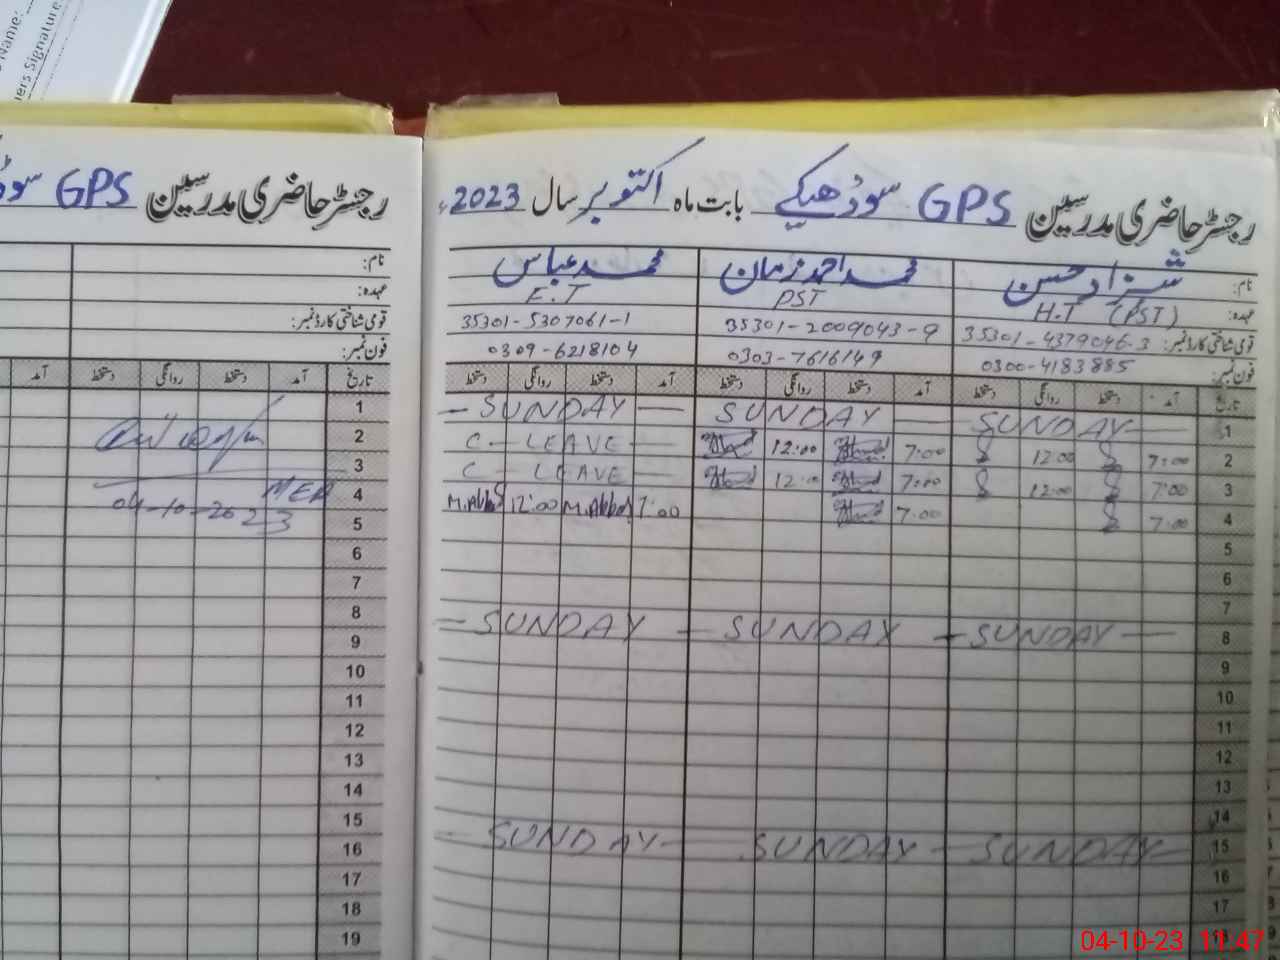 Name:
ers Signature
رجسٹر حاضری مدرسین GPS سودھیکے بابت ماہ اکتوبر سال 2023ء
نام: شہزاد حسن محمد احمد زمان محمد عباس
عہدہ: H.T (PST) PST E.T
قومی شناختی کارڈ نمبر: 35301-4379046-3 35301-2009043-9 35301-5307061-1
فون نمبر: 0300-4183885 0303-7616149 0309-6218104
تاریخ آمد دستخط روانگی دستخط آمد دستخط روانگی دستخط آمد دستخط روانگی دستخط
1 SUNDAY SUNDAY SUNDAY
2 7:00 12:00 7:00 12:00 C - LEAVE
3 7:00 12:00 7:00 12:00 C - LEAVE
4 7:00 7:00 7:00 M.Abbas 12:00 M.Abbas
5
6
7
8 SUNDAY SUNDAY SUNDAY
9
10
11
12
13
14
15 SUNDAY SUNDAY SUNDAY
16
17
18
رجسٹر حاضری مدرسین GPS
نام:
عہدہ:
قومی شناختی کارڈ نمبر:
فون نمبر:
تاریخ آمد دستخط روانگی دستخط آمد
1
2
3
4 MEA
5 04-10-2023
6
7
8
9
10
11
12
13
14
15
16
17
18
19
04-10-23 11:47